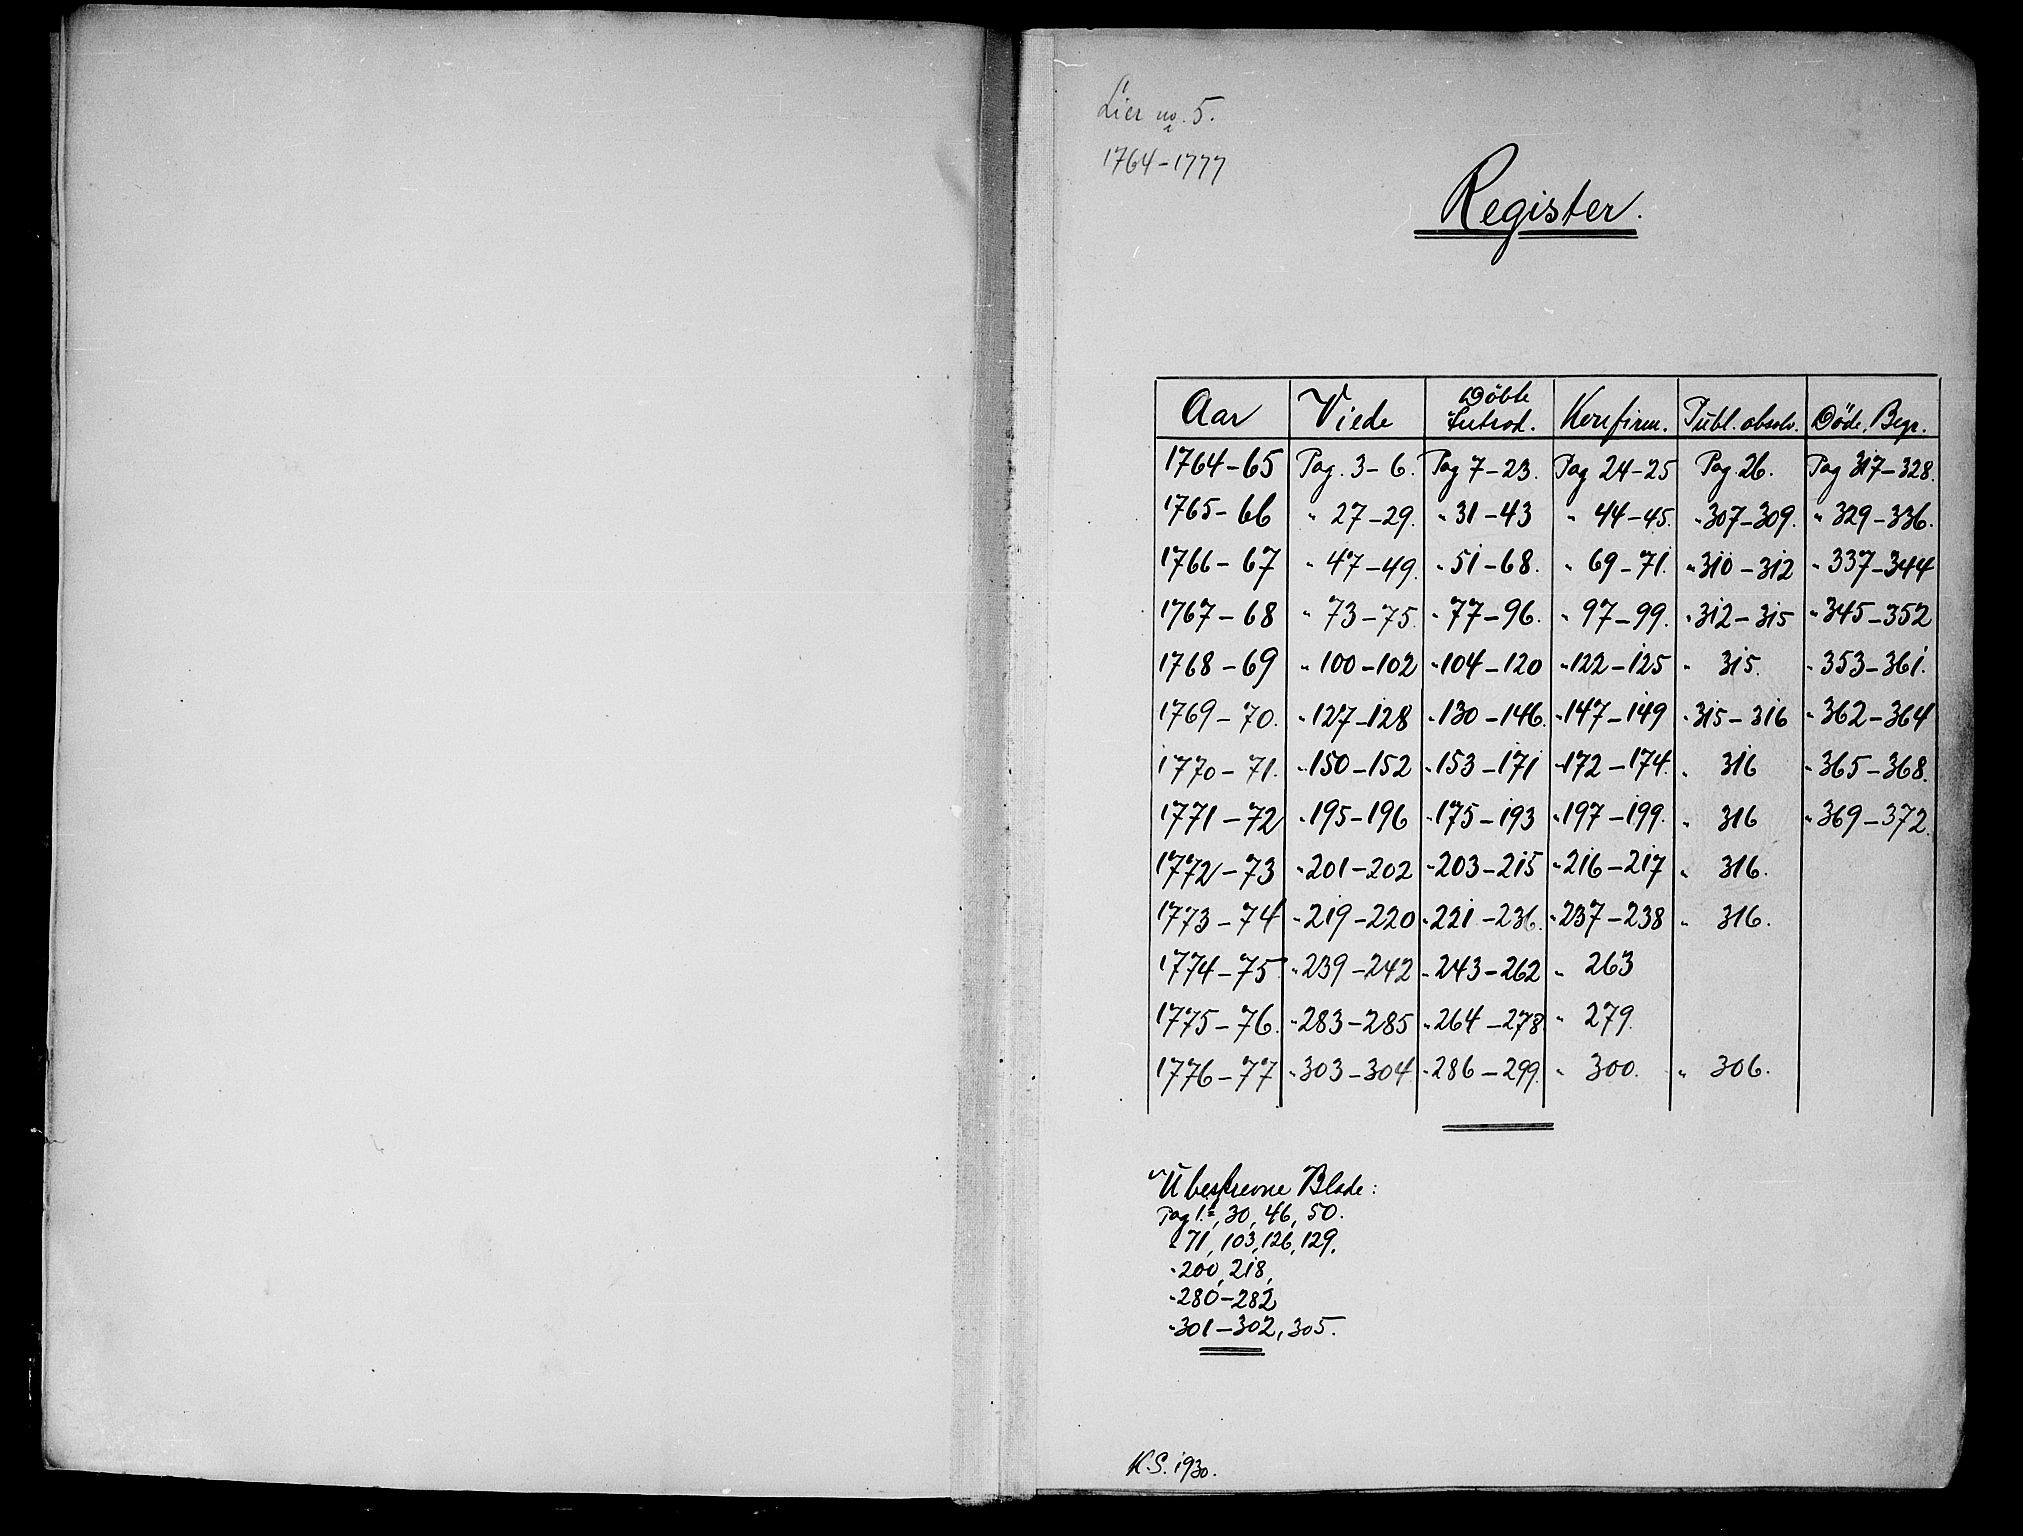 Lier no. 5.
1764-1777
Register.
Aar Viede Döbte Introd. Konfirm. Publ. absolv. Döde, Begr.
1764-65 Pag. 3-6. Pag 7-23. Pag 24-25 Pag. 26. Pag 317-328.
1765-66 " 27-29. " 31-43 " 44-45. " 307-309. " 329-336.
1766-67 " 47-49. " 51-68. " 69-71. " 310-312 " 337-344
1767-68 " 73-75. " 77-96. " 97-99. " 312-315 " 345-352
1768-69 " 100-102 " 104-120 " 122-125 " 315. " 353-361.
1769-70. " 127-128 " 130-146. " 147-149 " 315-316 " 362-364
1770-71. " 150-152 " 153-171 " 172-174. " 316 " 365-368.
1771-72 " 195-196 " 175-193 " 197-199. " 316 " 369-372.
1772-73 " 201-202 " 203-215 " 216-217 " 316.
1773-74 " 219-220 " 221-236. " 237-238 " 316.
1774-75 " 239-242 " 243-262 " 263
1775-76. " 283-285 " 264-278 " 279.
1776-77 " 303-304 " 286-299. " 300. " 306.
Ubeskrevne Blade:
Pag 1.=, 30, 46, 50.
" 71, 103, 126, 129.
" 200, 218,
" 280-282
" 301-302, 305.
K.S. 1930.